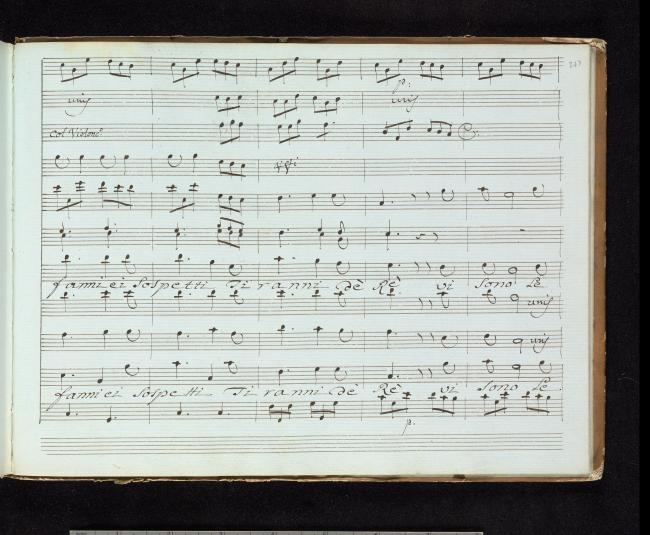 p:
unis unis
Col Violonc.º
fanni ei Sospetti Ti ranni dè Rè vi sono le
unis
unis
fanni ei Sospetti Ti ranni dè Rè vi sono le
p.